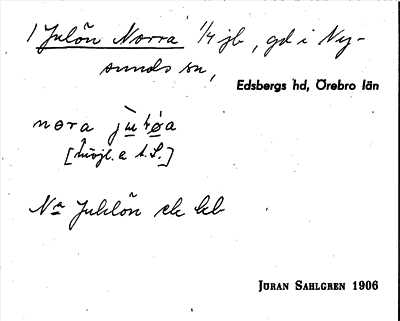 1 Julön Norra 1/4 jb, gd i Ny-
sunds sn,
Edsbergs hd, Örebro län
[möjl. a t. S.]
Na Juhlön ek kb
JÖRAN SAHLGREN 1906